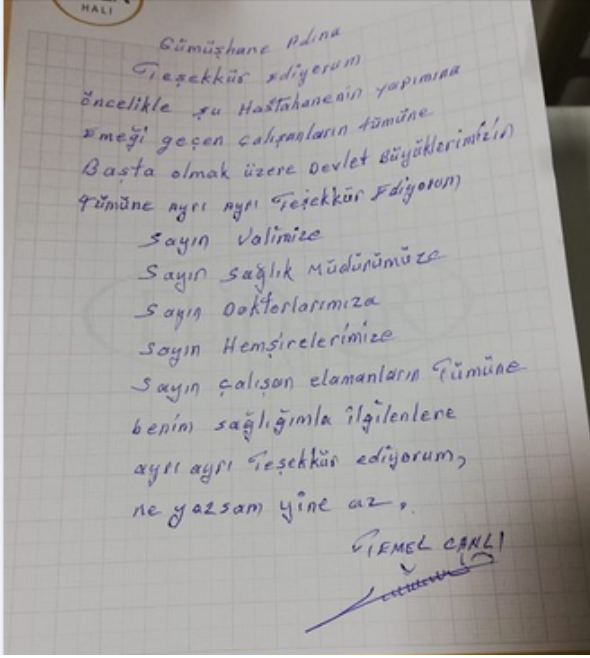 HALI
Gümüşhane Adına
Teşekkür ediyorum
öncelikle şu Hastahanenin yapımına
Emeği geçen çalışanların tümüne
Başta olmak üzere Devlet Büyüklerimizin
tümüne Ayrı Ayrı Teşekkür Ediyorum
Sayın Valimize
Sayın Sağlık Müdürümüze
Sayın Doktorlarımıza
Sayın Hemşirelerimize
Sayın çalışan elamanların Tümüne
benim sağlığımla ilgilenlere
ayrı ayrı Teşekkür ediyorum,
ne yazsam yine az.
TEMEL CANLI